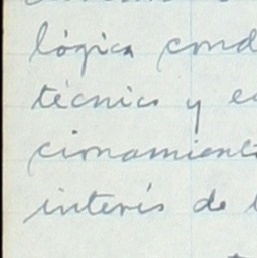 lógica cond
técnica y e
cionamient
interés de l